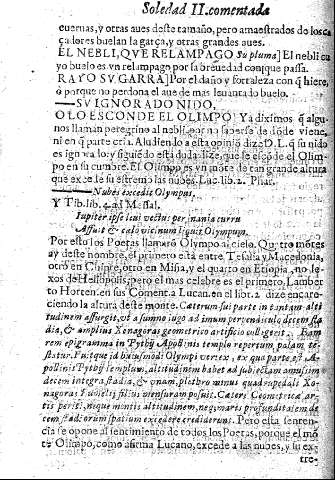 Soledad II. comentada
cuernas, y otras aues deste tamaño, pero amaestrados de los ca
çadores buelan la garça, y otras grandes aues.
EL NEBLI, QVE RELAMPAGO Su pluma] El nebli cu
yo buelo es vn relampago por la breuedad con que passa.
RAYO SV GARRA] Por el daño y fortaleza con q̃ hiere,
ò porque no perdona el aue de mas leuantado buelo.
SV IGNORADO NIDO,
O LO ESCONDE EL OLIMPO] Ya diximos q̃ algu
nos llaman peregrino al nebli, por no saberse de dõde viene,
ni en q̃ parte cria. Aludiendo a esta opiniõ dize D. L. q̃ su nido
es ignorado: y siguiẽdo esta duda dize, que se escõde el Olim
po en su cumbre. El Olimpo es vn mõte de tan grande altura
que excede su estremo las nubes. Luc. lib. 2. Phar.
Nubes excedit Olympus,
Y Tib. lib. 4. al Messal.
Iupiter ipse leui vectus per inania curru
Affuit & cælo vicinum liquit Olympum.
Por esto los Poetas llamarõ Olympo al cielo. Quatro mõtes
ay deste nombre, el primero està entre Tesalia y Macedonia,
otro en Chipre, otro en Misia, y el quarto en Etiopia, no le-
xos de Heliopolis, pero el mas celebre es el primero. Lamber
to Horten. en sus Coment. a Lucan. en el lib. 2. dize encare-
ciendo la altura deste monte. Cæterum sui parte in tantam alti
tudinem assurgit, vt a summo iugo ad imum perpendiculo decem sta
dia, & amplius Xenagoras geometrico artificio collegerit.
rem epigramma in Pythij Apollinis templo repertum, palam te-
statur. Fuitque id huiusmodi Olympi vertex, ex qua parte est A-
pollinis Pythij templum, altitudinem habet ad subiectam amussim
decem integra stadia, & vnam, plethro minus quadrupedali Xe-
nagoras Eumeli filius mensuram posuit. Cæteri Geometricæ ar-
tis periti, neque montis altitudinem, neq; maris profunditatem de-
cem stadiorum spatium excedere crediderunt. Pero esta senten-
cia se opone al sentimiento de todos los Poetas, porque el mõ
te Olimpo, como afirma Lucano, excede a las nubes, y su ex
tre-